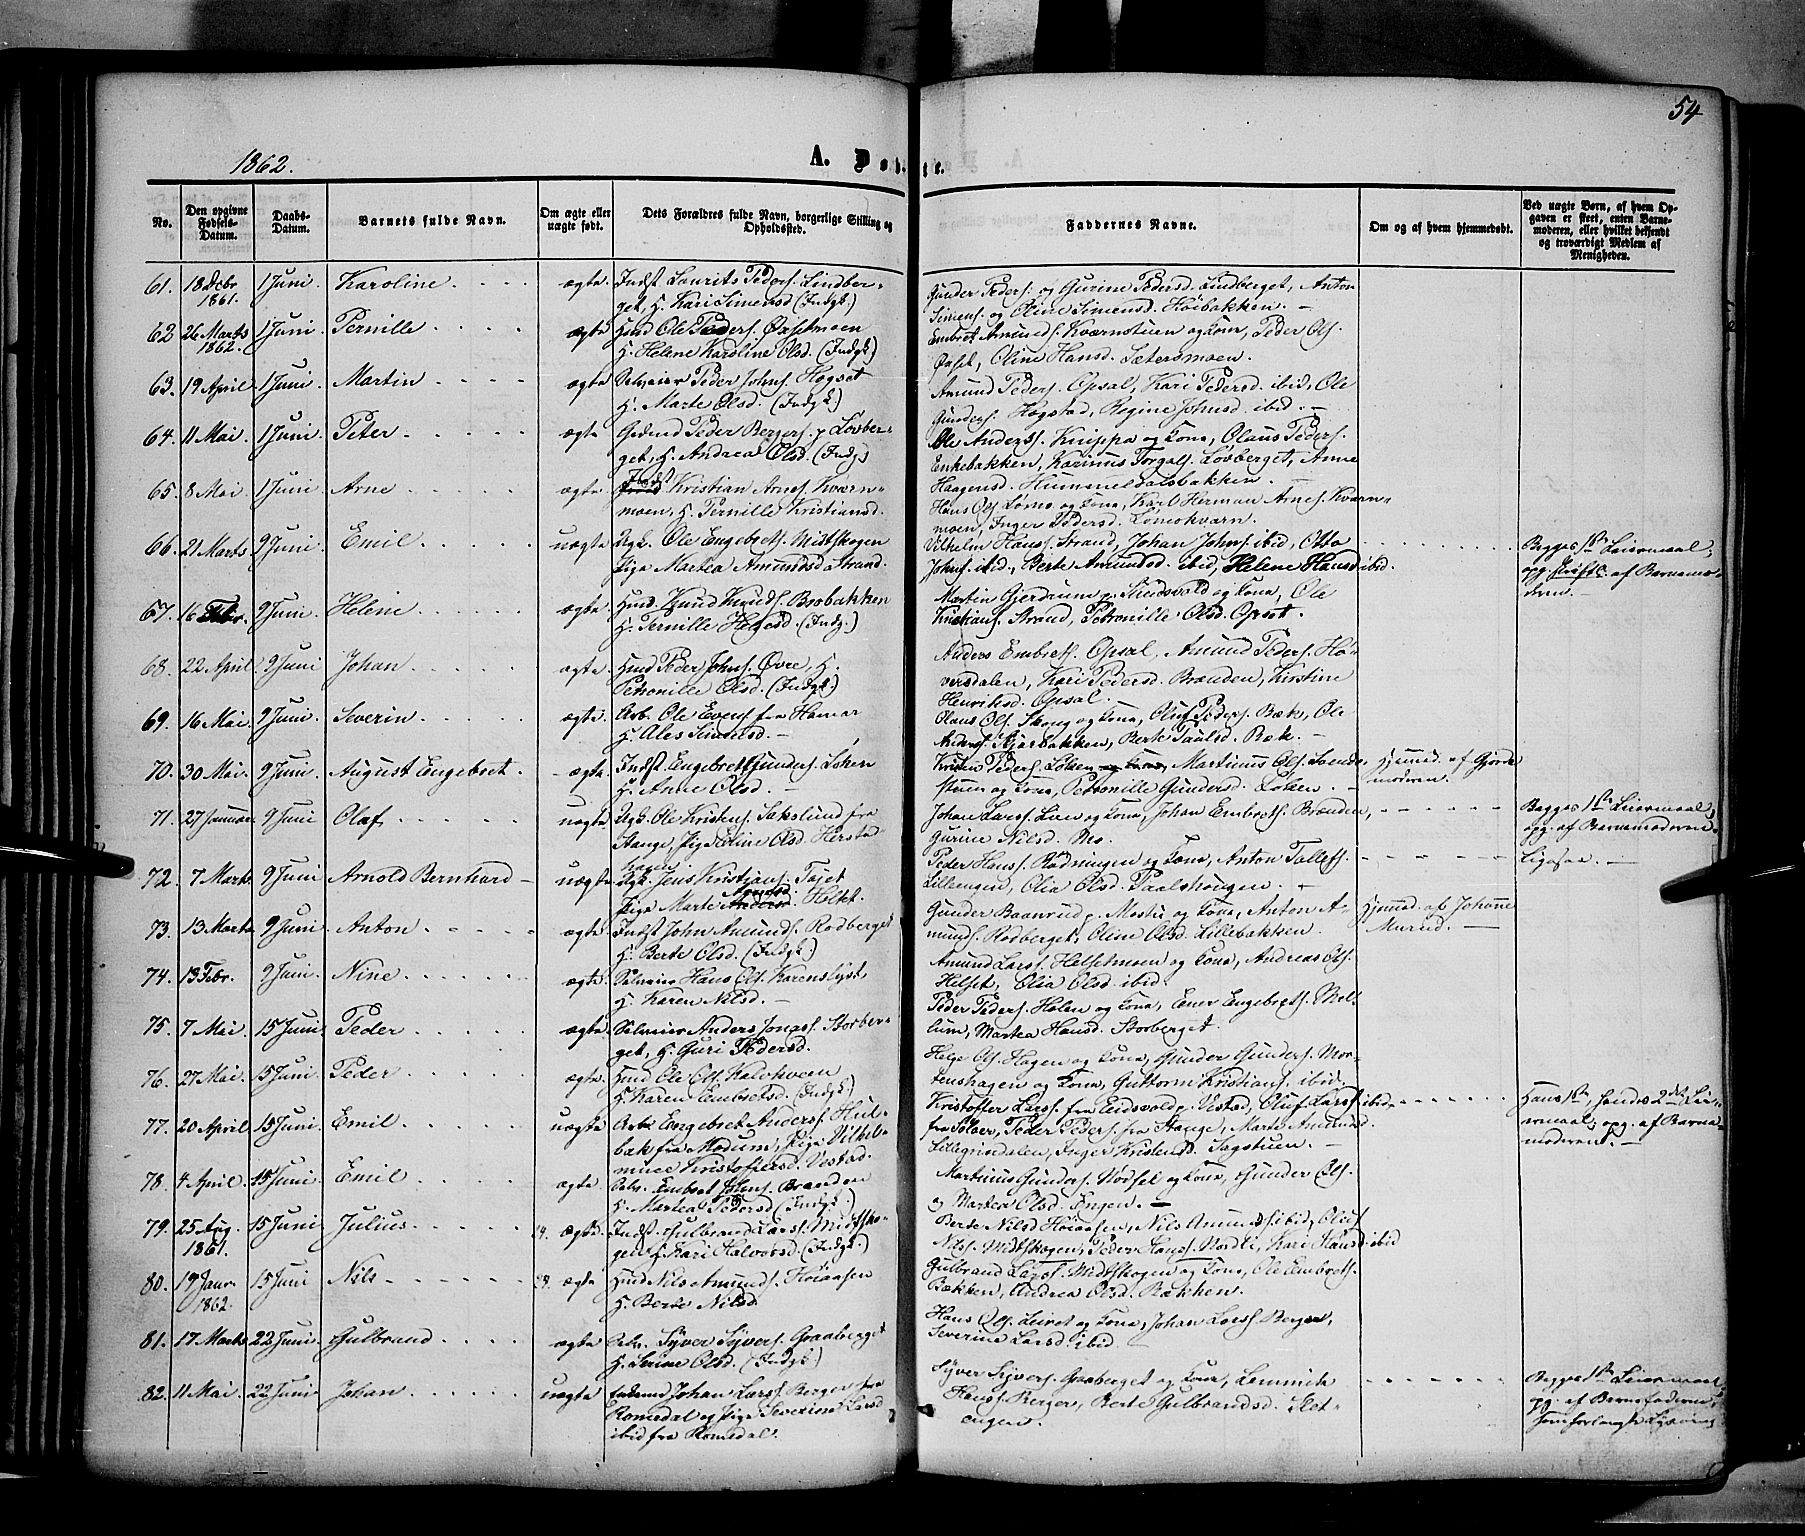 54
1862.
A. Døbte.
No.
Den opgivne Fødsels-Datum.
Daabs-Datum.
Barnets fulde Navn.
Om ægte eller uægte født.
Dets Forældres fulde Navn, borgerlige Stilling og Opholdssted.
Faddernes Navne.
Om og af hvem hjemmedøbt.
Ved uægte Børn, af hvem Opgaven er skeet, enten Barnemoderen, eller hvilket bekjendt og troværdigt Medlem af Menigheden.
61. 18 Dcbr 1861. 1 Juni. Karoline ægte Indst Laurits Peders. Lindber-
get, H. Kari Simensd (Indgk.)
Gunder Peders. og Gurine Pedersd. Lindberget, Anton
Simens. og Oline Simensd. Høibakken.
62. 26 Marts 1862. 1 Juni. Pernille ægte Hmd Ole Peders. Øxsetmoen
H. Helene Karoline Olsd. (Indgk.)
Embret Amunds. Kværnstuen og Kone, Peder Ols.
Øxset, Oline Hansd. Sætersmoen.
63. 19 April 1 Juni. Martin ægte Selveier Peder Johns. Høgset
H. Marte Olsd. (Indgk.)
Amund Peders. Opsal, Kari Pedersd. ibid, Ole
Gunders. Høgstad, Regine Johnsd. ibid.
64. 11 Mai 1 Juni. Peter ægte Gdmd Peder Bergers. p. Løvber-
get, H. Andrea Olsd. (Indg.)
Ole Anderss. Knippa og Kone, Olaus Peders.
Enkebakken, Karinus Torgals. Løvberget, Anne
Haagensd. Hummeldalsbakken.
65. 8 Mai 1 Juni. Arne ægte Indst Kristian Arnes. Kværn-
moen, H. Pernille Kristiansd.
Hans Ols Lømo og Kone, Karl Herman Arnes. Kværn-
moen, Inger Pedersd. Lømokværn.
66. 21 Marts 9 Juni. Emil uægte Ugk. Ole Engebrets. Midtskogen
Pige Martea Amundsd. Strand.
Vilhelm Hans. Strand, Johan Johns. ibid, Otto
Johns. ibid., Berte Amundsd. ibid, Helene Hansd ibid.
Begges 1ste Leiermaal,
opg. af Barnemo-
deren.
67. 16 Febr. 9 Juni. Helene ægte Hmd. Knud Knuds. Brobakken
H. Pernille Helgesd. (Indg.)
Martin Gjerdrum p. Sundsvold og Kone, Ole
Kristians. Strand, Petronille Olsd. Opset.
68. 22 April 9 Juni Johan ægte Hmd Peder Johns. Øvre, H.
Petronille Olsd. (Indgk.)
Anders Embrets. Opsal, Amund Peders. Hø-
versdalen, Kari Pedersd. Brænden, Kirstine
Henriksd. Opsal.
69. 16 Mai. 9 Juni. Severin ægte. Arb. Ole Evens. fra Hamar
H. Ales Simensd.
Olaus Ols. Skoug og Kone, Oluf Peders. Bæk, Ole
Anderss. Stjærbakken, Berte Paulsd. Bæk.
70. 30 Mai. 9 Juni. August Engebret. ægte Indst Engebret Gunders. Løken
H. Anne Olsd.
Kristen Peders. Løken, Martinus Ols. Svends-
stuen og Kone, Petronille Gundersd. Løken.
Hjemmed. af Gjorde-
moderen.
71. 27 Januar 9 Juni Olaf uægte Ugk. Ole Kristens. Sakslund fra
Stange, Pige Eline Olsd. Hersta-
hagen
Johan Larss. Lien og Kone, Johan Embrets. Brænden,
Gurine Nilsd. Mo.
Begges 1ste Leiermaal,
opg. af Barnemoderen.
72. 7 Marts 9 Juni. Arnold Bernhard uægte Ugk. Jens Kristians. Tajet
Pige Marte Helset.
Peder Hanss. Rødningen og Kone, Anton Tollefs.
Lillengen, Olia Olsd. Paalshougen.
Ligesaa.
73. 13 Marts 9 Juni. Anton ægte Indst John Amunds. Rødberget
H. Berte Olsd. (Indgk.)
Gunder Baanrud p. Mostu og Kone, Anton A-
munds. Rødberget, Oline Olsd. Lillebakken.
Hjemmed. af Johanne
Murud.
74. 13 Febr. 9 Juni. Nine ægte Selveier Hans Ols. Karenslyst,
H. Karen Nilsd.
Amund Larss. Helsetmoen og Kone, Andreas Ols.
Helset, Olia Olsd. ibid.
75. 7 Mai 15 Juni Peder ægte Selveier Anders Jonass. Storber-
get, H. Guri Pedersd.
Peder Peders. Holen og Kone, Ener Engebrets. Mel-
lum, Martea Hansd. Storberget.
76. 27 Mai. 15 Juni Peder ægte. Hmd Ole Ols. Kalvhveen
H. Karen Embretsd. (Indgk.)
Helge Ols. Hagen og Kone, Gunder Gunders. Mor-
tenshagen og Kone, Guttorm Kristians. ibid.
77. 20 April 15 Juni. Emil uægte Arb. Engebret Anderss. Hul-
bak fra Modum, Pige Vilhel-
mine Kristoffersd. Vestad.
Kristoffer Larss. fra Eidsvold p. Vestad, Oluf Larss ibid,
fra Soløer, Peder Peders. fra Stange, Marte Amundsd.
Lillegnødalen, Inger Kristensd. Sagstuen.
Hans 1ste, hendes 2det Lei-
ermaal, opg. af Barne-
moderen.
78. 4 April. 15 Juni Emil ægte Selv. Embret Johns. Brænden
H. Martea Pedersd. (Indgk.)
Martinus Gunders. Nødsel og Kone, Gunder Ols.
og Martea Olsd. Engen.
79. 25 Aug. 1861. 15 Juni Julius ægte. Indst. Gulbrand Larss. Midtsko-
gen, H. Kari Halvorsd. (Indgk.)
Berte Nilsd Høiaasen, Nils Amunds. ibid, Oluf
Nilss. Midtskogen, Peder Hanss. Nordli, Kari Hansd ibid
80. 19 Janr. 1862. 15 Juni Nils ægte Hmd Nils Amunds. Høiaasen
H. Berte Nilsd.
Gulbrand Larss. Midtskogen og Kone, Ole Embrets.
Bækken, Andrea Olsd. Bækken.
81. 17 Marts 22 Juni. Gulbrand ægte Selv. Syver Syvers. Graaberget
H. Serine Olsd. (Indgk.)
Hans Ols. Leiret og Kone, Johan Larss. Berger,
Severine Larsd. ibid.
82. 11 Mai. 22 Juni Johan uægte Johan Larss. Berger fra
Romedal og Pige Severine Larsd
ibid fra Romedal.
Syver Syvers. Graaberget og Kone, Lemmik
Hans. Berger, Berte Gulbrandsd. Slet-
engen.
Begges 1ste Leiermaal,
opg. af Barnefaderen,